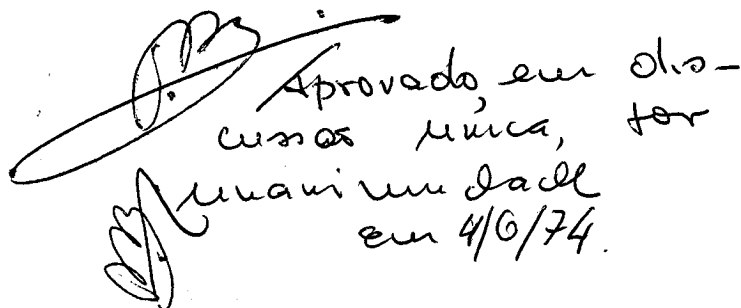 Aprovado, em dis-
cussão única, por
unanimidade
em 4/6/74.